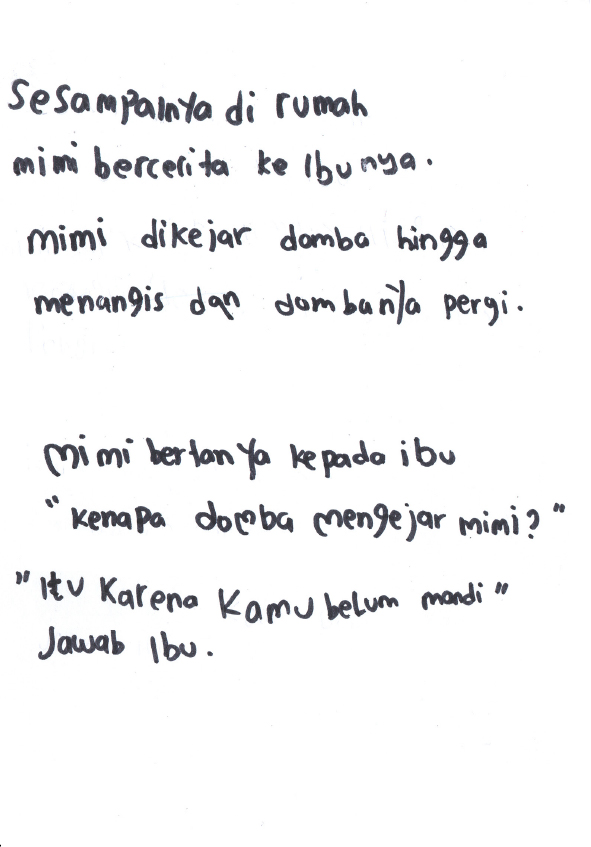 Sesampainya di rumah
mimi bercerita ke Ibunya.
mimi dikejar domba hingga
menangis dan dombanya pergi.
Mimi bertanya kepada ibu
"kenapa domba mengejar mimi?"
"Itu Karena Kamu belum mandi"
Jawab Ibu.